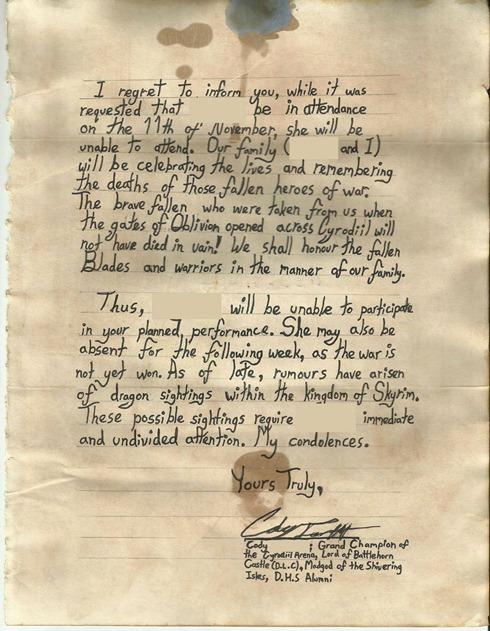 I regret to inform you, while it was
requested that be in attendance
on the 11th of November, she will be
unable to attend. Our family ( and I)
will be celebrating the lives and remembering
the deaths of those fallen heroes of war.
The brave fallen who were taken from us when
the gates of Oblivion opened across Cyrodiil will
not have died in vain! We shall honour the fallen
Blades and warriors in the manner of our family.
Thus, will be unable to participate
in your planned performance. She may also be
absent for the following week, as the war is
not yet won. As of late, rumours have arisen
of dragon sightings within the kingdom of Skyrim.
These possible sightings require immediate
and undivided attention. My condolences.
Yours Truly,
Cody ; Grand Champion of
the Cyrodiil Arena, Lord of Battlehorn
Castle (D.L.C), Madgod of the Shivering
Isles, D.H.S Alumni